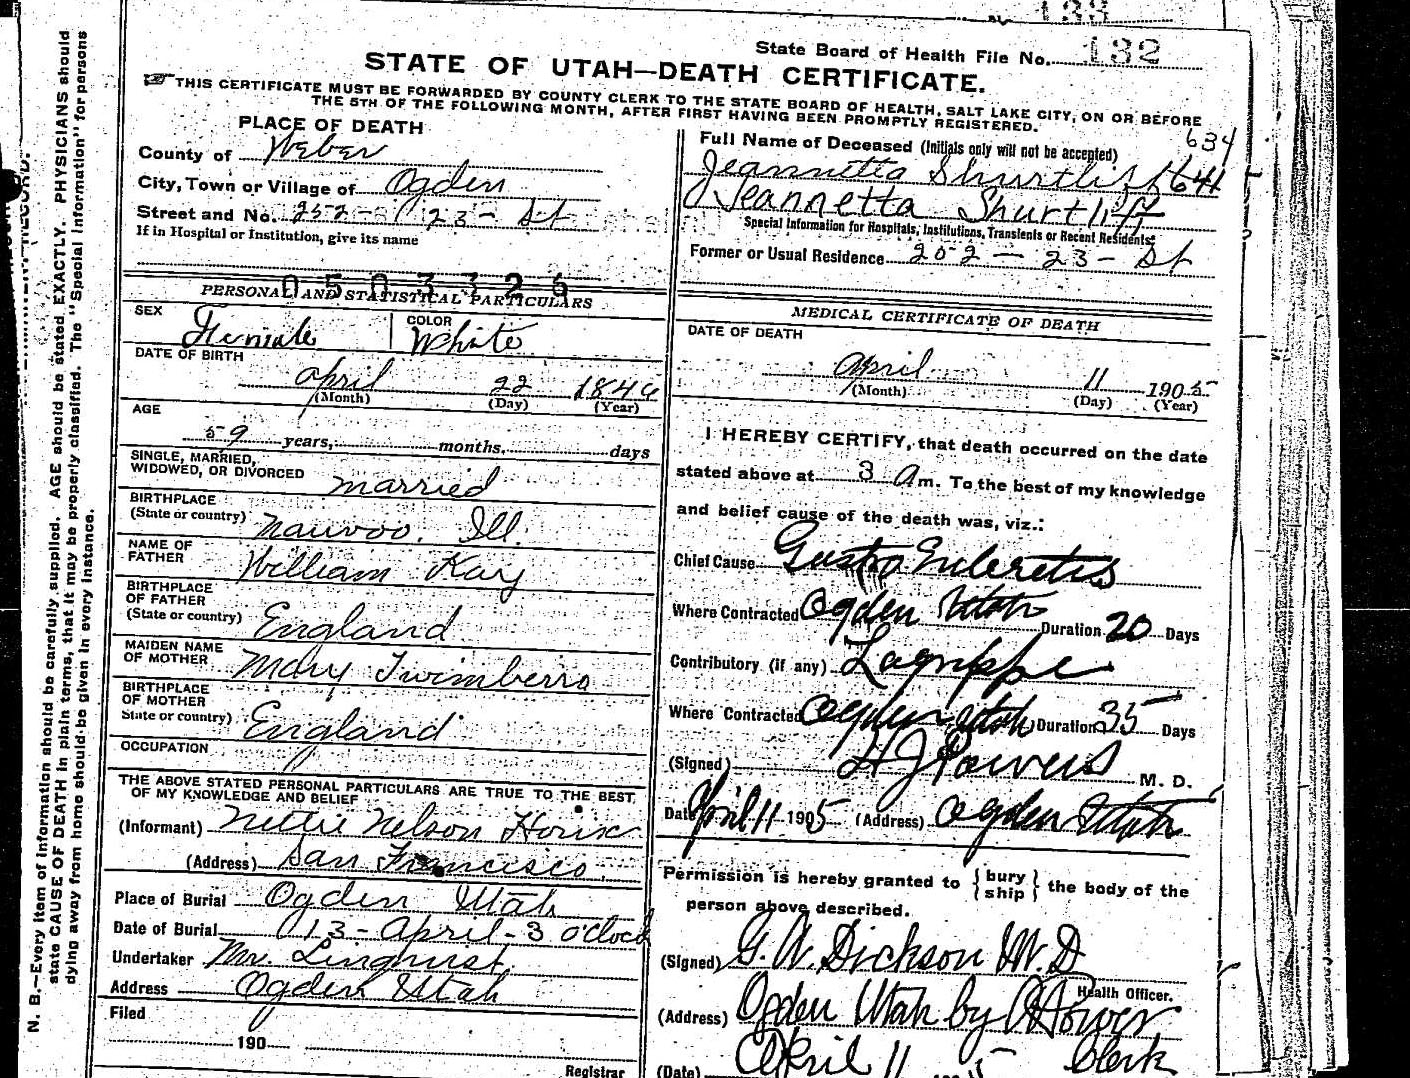 State Board of Health File No. 132
STATE OF UTAH—DEATH CERTIFICATE.
THIS CERTIFICATE MUST BE FORWARDED BY COUNTY CLERK TO THE STATE BOARD OF HEALTH, SALT LAKE CITY, ON OR BEFORE
THE 5TH OF THE FOLLOWING MONTH, AFTER FIRST HAVING BEEN PROMPTLY REGISTERED.
634
PLACE OF DEATH
County of Weber
City, Town or Village of Ogden
Street and No. 252- 23- St
If in Hospital or Institution, give its name
0503326
PERSONAL AND STATISTICAL PARTICULARS
SEX Female COLOR White
DATE OF BIRTH
April 22 1846
(Month) (Day) (Year)
AGE
59 years, months, days
SINGLE, MARRIED,
WIDOWED, OR DIVORCED married
BIRTHPLACE
(State or country) Nauvoo. Ill.
NAME OF
FATHER William Kay
BIRTHPLACE
OF FATHER
(State or country) England
MAIDEN NAME
OF MOTHER Mary Twimberro
BIRTHPLACE
OF MOTHER
State or country) England
OCCUPATION
THE ABOVE STATED PERSONAL PARTICULARS ARE TRUE TO THE BEST
OF MY KNOWLEDGE AND BELIEF
(Informant) Nettie Nelson
(Address) San Francisco.
Place of Burial Ogden Utah
Date of Burial 13- April- 3 o'clock
Undertaker Mr. Linquist
Address Ogden Utah
Filed
190
Registrar
Full Name of Deceased (Initials only will not be accepted)
Jeannetta Shurtliff 641
Jeannetta Shurtliff
Special Information for Hospitals, Institutions, Transients or Recent Residents:
Former or Usual Residence 252 — 23- St
MEDICAL CERTIFICATE OF DEATH
DATE OF DEATH
April 11 1905
(Month) (Day) (Year)
I HEREBY CERTIFY, that death occurred on the date
stated above at 3 a m. To the best of my knowledge
and belief cause of the death was, viz.:
Chief Cause Gastro Enteretis
Where Contracted Ogden Utah Duration 20 Days
Contributory (if any) Lagrippe
Where Contracted Ogden Utah Duration 35 Days
(Signed) H J Powers M. D.
Date April 11 1905 (Address) Ogden Utah
Permission is hereby granted to { bury ship } the body of the
person above described.
(Signed) G. W. Dickson M. D
Health Officer.
(Address) Ogden Utah by
(Date) April 11 5 Clerk
N. B.—Every item of information should be carefully supplied. AGE should be stated EXACTLY. PHYSICIANS should
state CAUSE OF DEATH in plain terms, that it may be properly classified. The "Special Information" for persons
dying away from home should be given in every instance.